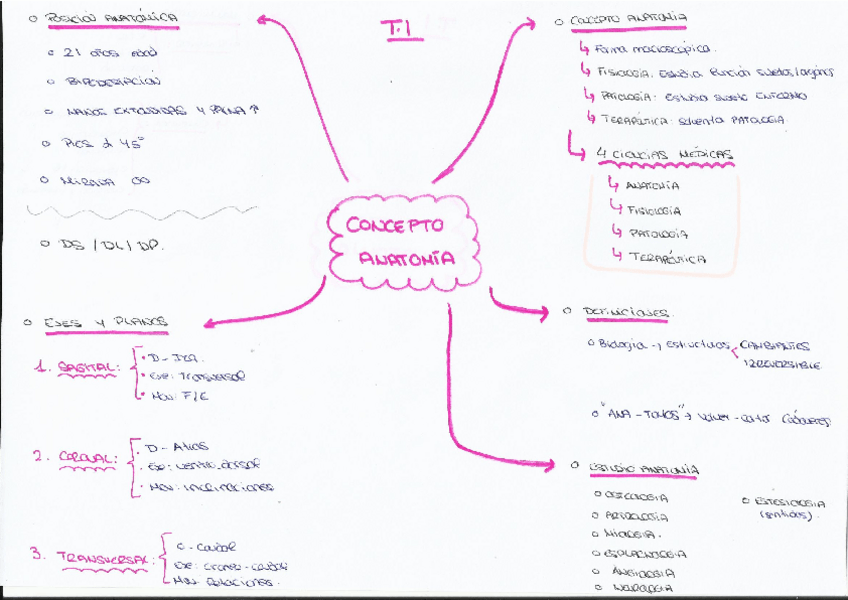 T.1
○ POSICIÓN ANATÓMICA
○ 21 años edad
○ BIPEDESTACIÓN
○ MANOS EXTENDIDAS Y PALMA ↑
○ PIES 45°
○ MIRADA ∞
○ DS / DL / DP.
○ CONCEPTO ANATOMÍA
↳ Forma macroscópica.
↳ FISIOLOGÍA: Estudia función
↳ PATOLOGÍA: Estudia ENTORNO
↳ TERAPÉUTICA: solventa PATOLOGIA
↳ 4 CIENCIAS MÉDICAS
↳ ANATOMÍA
↳ FISIOLOGÍA
↳ PATOLOGÍA
↳ TERAPÉUTICA
CONCEPTO
ANATOMÍA
○ EJES Y PLANOS
1. SAGITAL:
· D-IZQ.
· EJE: TRANSVERSAL
· MOV: F/E
2. CORONAL:
· D-Atrás
· EJE: ventro.dorsal
· MOV: INCLINACIONES
3. TRANSVERSAL:
C-Caudal
EJE: craneo-caudal
MOV: ROTACIONES.
○ DEFINICIONES.
○ Biología → ESTRUCTURAS CAMBIANTES
IRREVERSIBLE
○ "ANA-TOMOS" → cortar CADÁVERES
○ ESTUDIO ANATOMÍA
○ OSTEOLOGÍA
○ ARTROLOGÍA
○ MIOLOGÍA.
○ ESPLACNOLOGÍA
○ ANGIOLOGÍA
○ NEUROLOGÍA
○ ESTESIOLOGÍA
(sentidos).